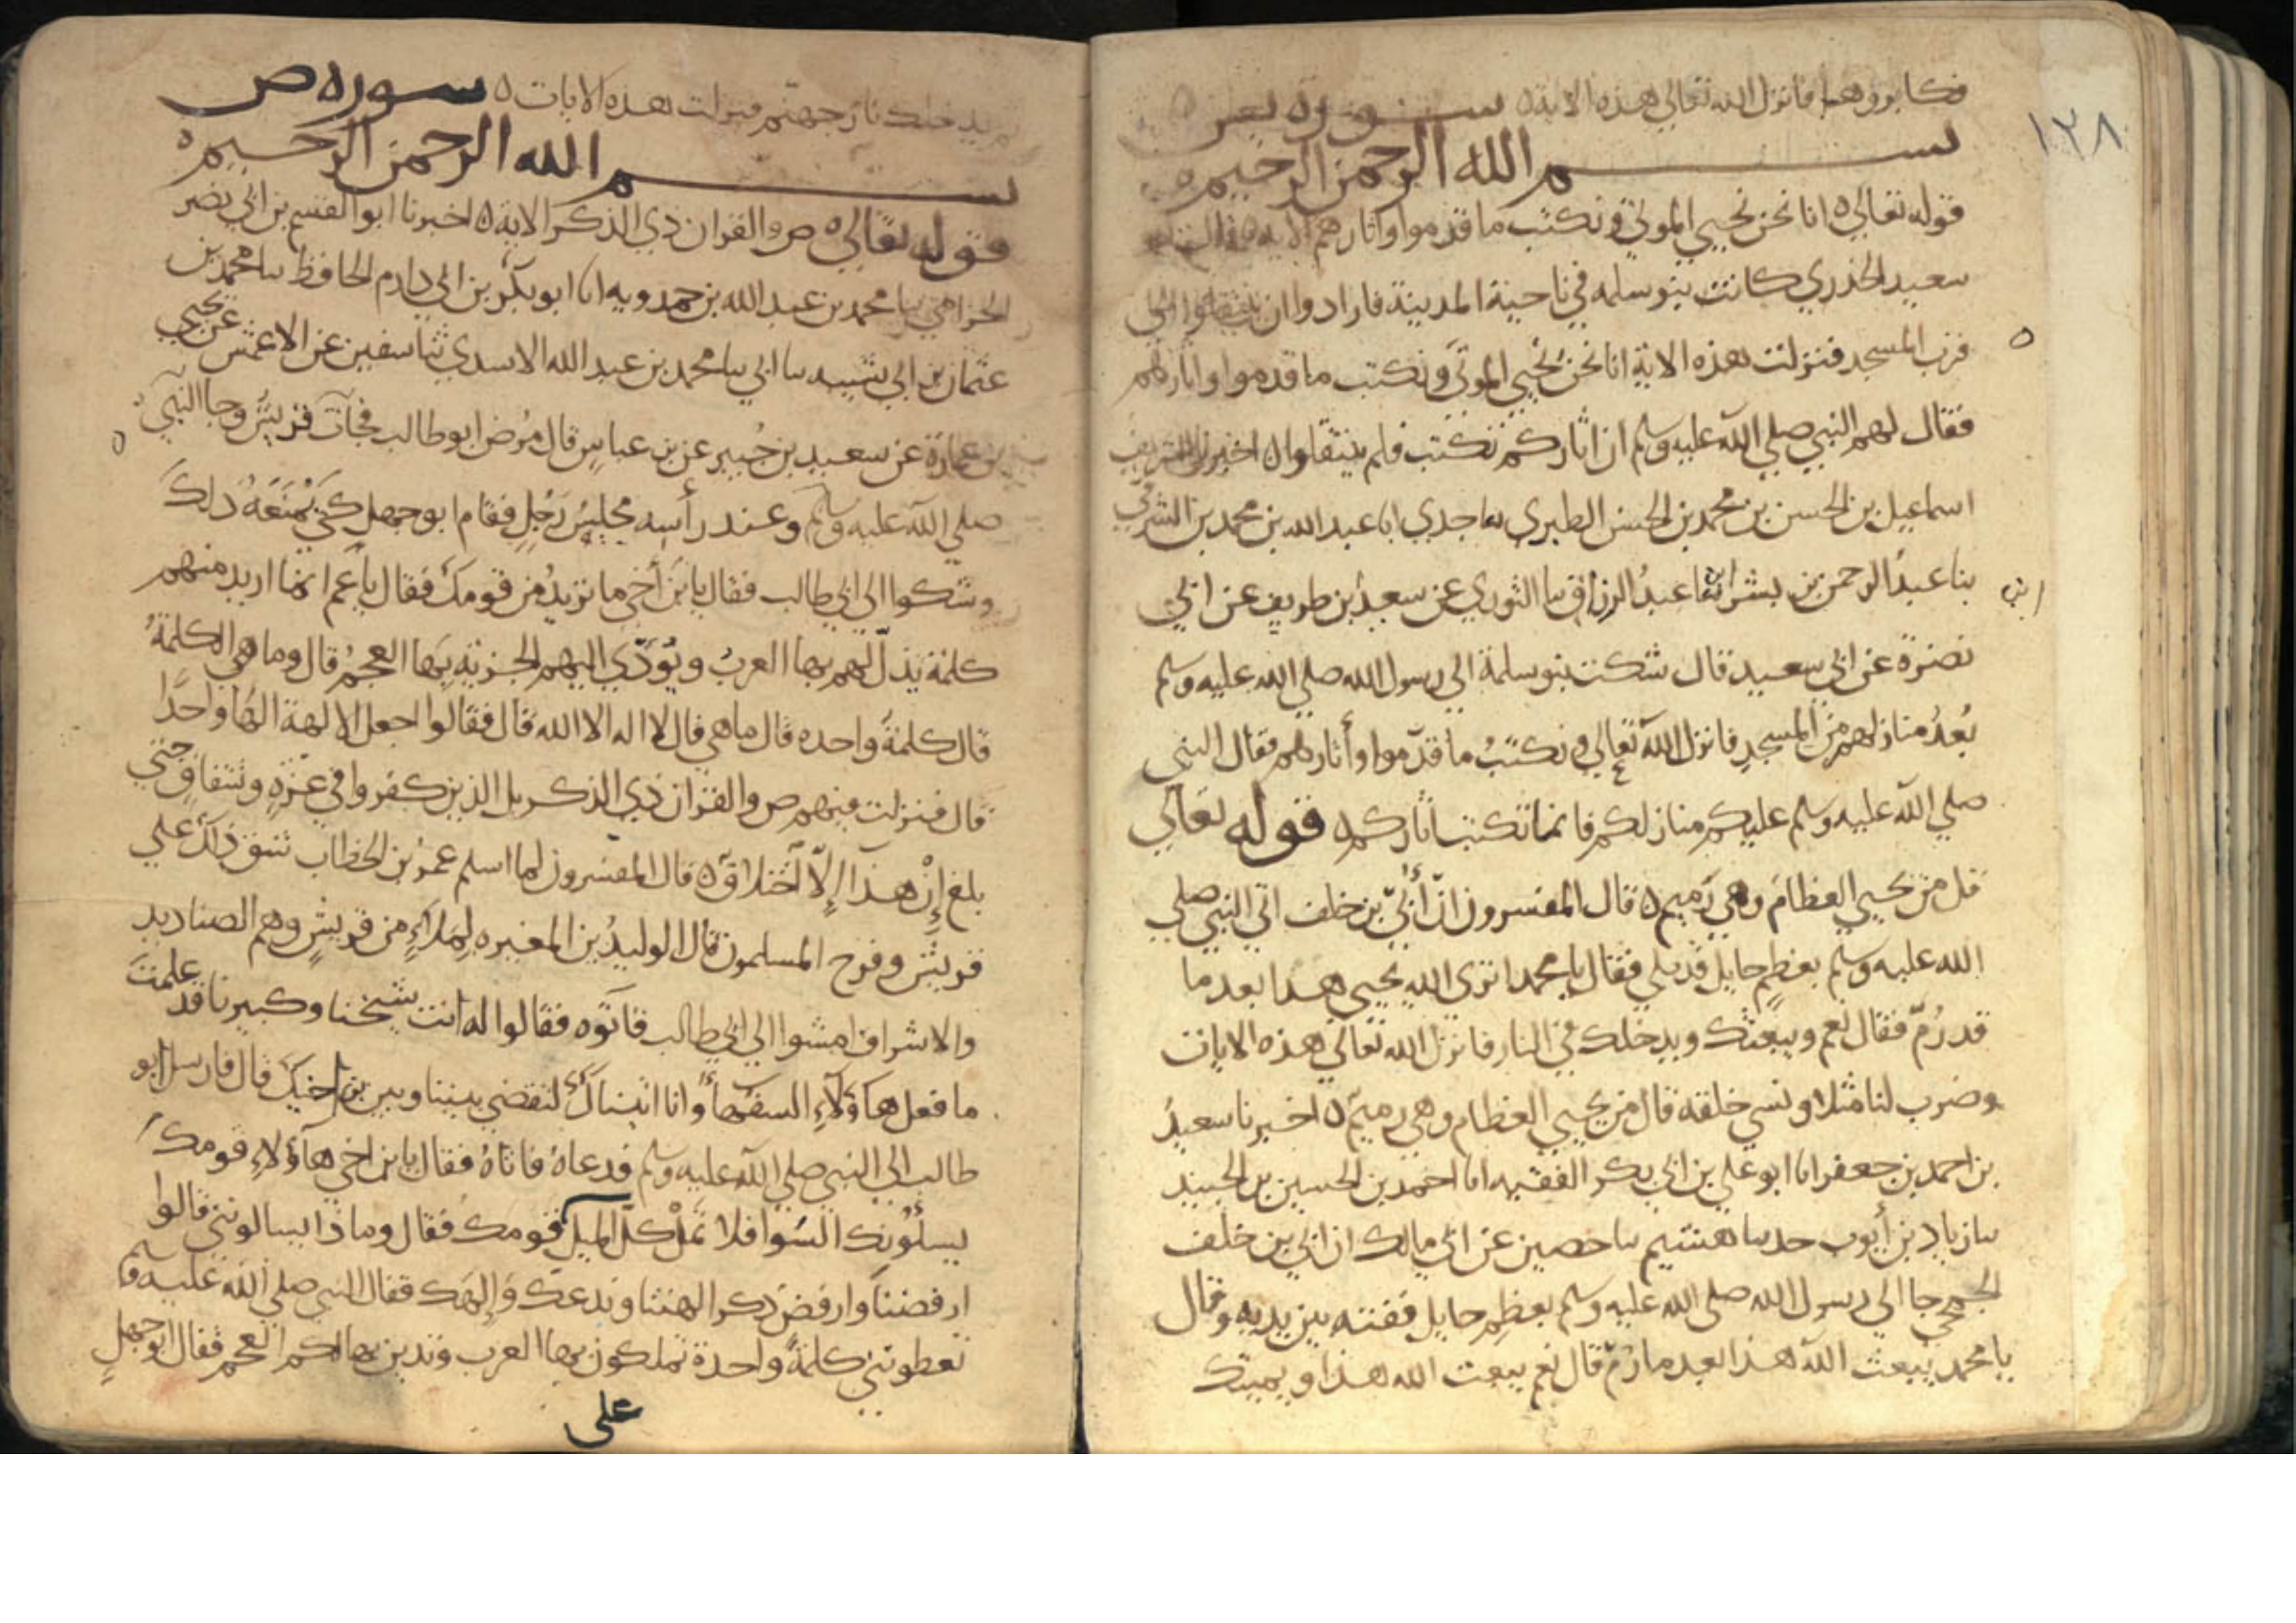 ١٣٨
فكابروهما فانزل الله تعالي هذه الاية ٥ سورة يس
بسم الله الرحمن الرحيم ٥
قوله تعالي ٥ انا نحن نحيي الموتي ونكتب ما قدموا واثارهم الاية ٥ قال ابو
سعيد الخذري كانت بنو سلمه في ناحية المدينة فارادوا ان ينتقلوا الي
قرب المسجد فنزلت هذه الاية انا نحن نحيي الموتي ونكتب ما قدموا واثارهم
فقال لهم النبي صلي الله عليه وسلم ان اثاركم تكتب فلم ينتقلوا ٥ اخبرنا الشريف
اسماعيل بن الحسن بن محمد بن الحسن الطبري ثنا جدي انا عبد الله بن محمد بن الشرقي
بنا عبد الرحمن بن بشر انا عبد الرزاق ثنا الثوري عن سعيد بن طريف عن ابي
نضرة عن ابي سعيد قال شكت بنو سلمة الي رسول الله صلي الله عليه وسلم
بُعدُ منازلهم من المسجدِ فانزل الله تعالي ونكتبُ ما قدّموا وأثارهم فقال النبي
صلي الله عليه وسلم عليكم منازلكم فانما تكتب اثاركم ٥ قوله تعالي
قل من يحيي العظامَ وهي رَميم ٥ قال المفسرون انّ أُبيّ بن خلف اتي النبي صلي
الله عليه وسلم بعظمٍ حايل قد بلي فقال يا محمد اتري الله يحيي هذا بعد ما
قد رُمّ فقال نعم ويبعثك ويدخلك في النار فانزل الله تعالي هذه الايات
وضرب لنا مثلا ونسي خلقه قال من يحيي العظام وهي رميم ٥ اخبرنا سعيدُ
بن احمد بن جعفر انا ابو علي بن ابي بكر الفقيه انا احمد بن الحسين بن الجنيد
ثنا زياد بن أيوب حدثنا هشيم ثنا حصين عن ابي مالك ان ابي بن خلف
الجمحي جا الي رسول الله صلي الله عليه وسلم بعظمٍ حايل ففتته بين يديه وقال
يا محمد يبعث الله هذا بعد ما رُمّ قال نعم يبعث الله هذا ويميتك
يدخلك نار جهنّم فنزلت هذه الايات ٥ سورة ص
بسم الله الرحمن الرحيم ٥
قوله تعالي ٥ ص والقران ذي الذكر الاية ٥ اخبرنا ابو القسم بن ابي نضر
الخزاعي ثنا محمد بن عبد الله بن حمدويه انا ابو بكر بن ابي دارم الحافظ ثنا محمد بن
عثمان بن ابي شيبه ثنا ابي ثنا محمد بن عبد الله الاسدي ثنا سفين عن الاعمش عن يحيي
بن عمارة عن سعيد بن جُبير عن بن عباسٍ قال مرُض ابو طالب فجآت قريش وجا النبي
صلي الله عليه وسلم وعند رأسه مجلسُ رَجُلٍ فقام ابو جهل كي يُمنَعَهُ ذلك
وشكوا الي ابي طالب فقال يا بن أخي ما تريدُ من قومك فقال يا عم انما اريد منهم
كلمة يذلّ لهم بها العربُ ويؤدّي اليهم الجزية بها العجمُ قال وما هي الكلمةُ
قال كلمةً واحده قال ما هي قال لا اله الا الله قال فقالوا اجعل الالهة الهًا واحدًا
قال فنزلت فيهم ص والقران ذي الذكر بل الذين كفروا في عزةٍ وشقاقٍ حتي
بلغ إن هذا إلّا اختلاق ٥ قال المفسرون لما اسلم عمرُ بن الخطاب شق ذلك علي
قريش وفرح المسلمون قال الوليدُ بن المغيره لِملاءٍ من قريشٍ وهم الصناديد
والاشراف امشوا الي ابي طالب فاتَوه فقالوا له انت شيخنا وكبيرنا قد علمت
ما فعل هاؤلآءِ السفهآءُ وانا اتيناك لتقضي بيننا وبين بن اخيكَ قال فارسل ابو
طالب الي النبي صلي الله عليه وسلم فدعاهُ فاتاهُ فقال يا بن اخي هآؤلاءِ قومك
يسألُونك السُوا فلا تمِلْ كلّ الميل قومك فقال وماذا يسالونني قالوا
ارفضنا وارفض ذكر الهتنا وندعك وإلهك فقال النبي صلي الله عليه وسلم
تعطونني كلمةً واحدة تملكون بها العرب وتدين بها لكم العجم فقال ابو جهلٍ
علي